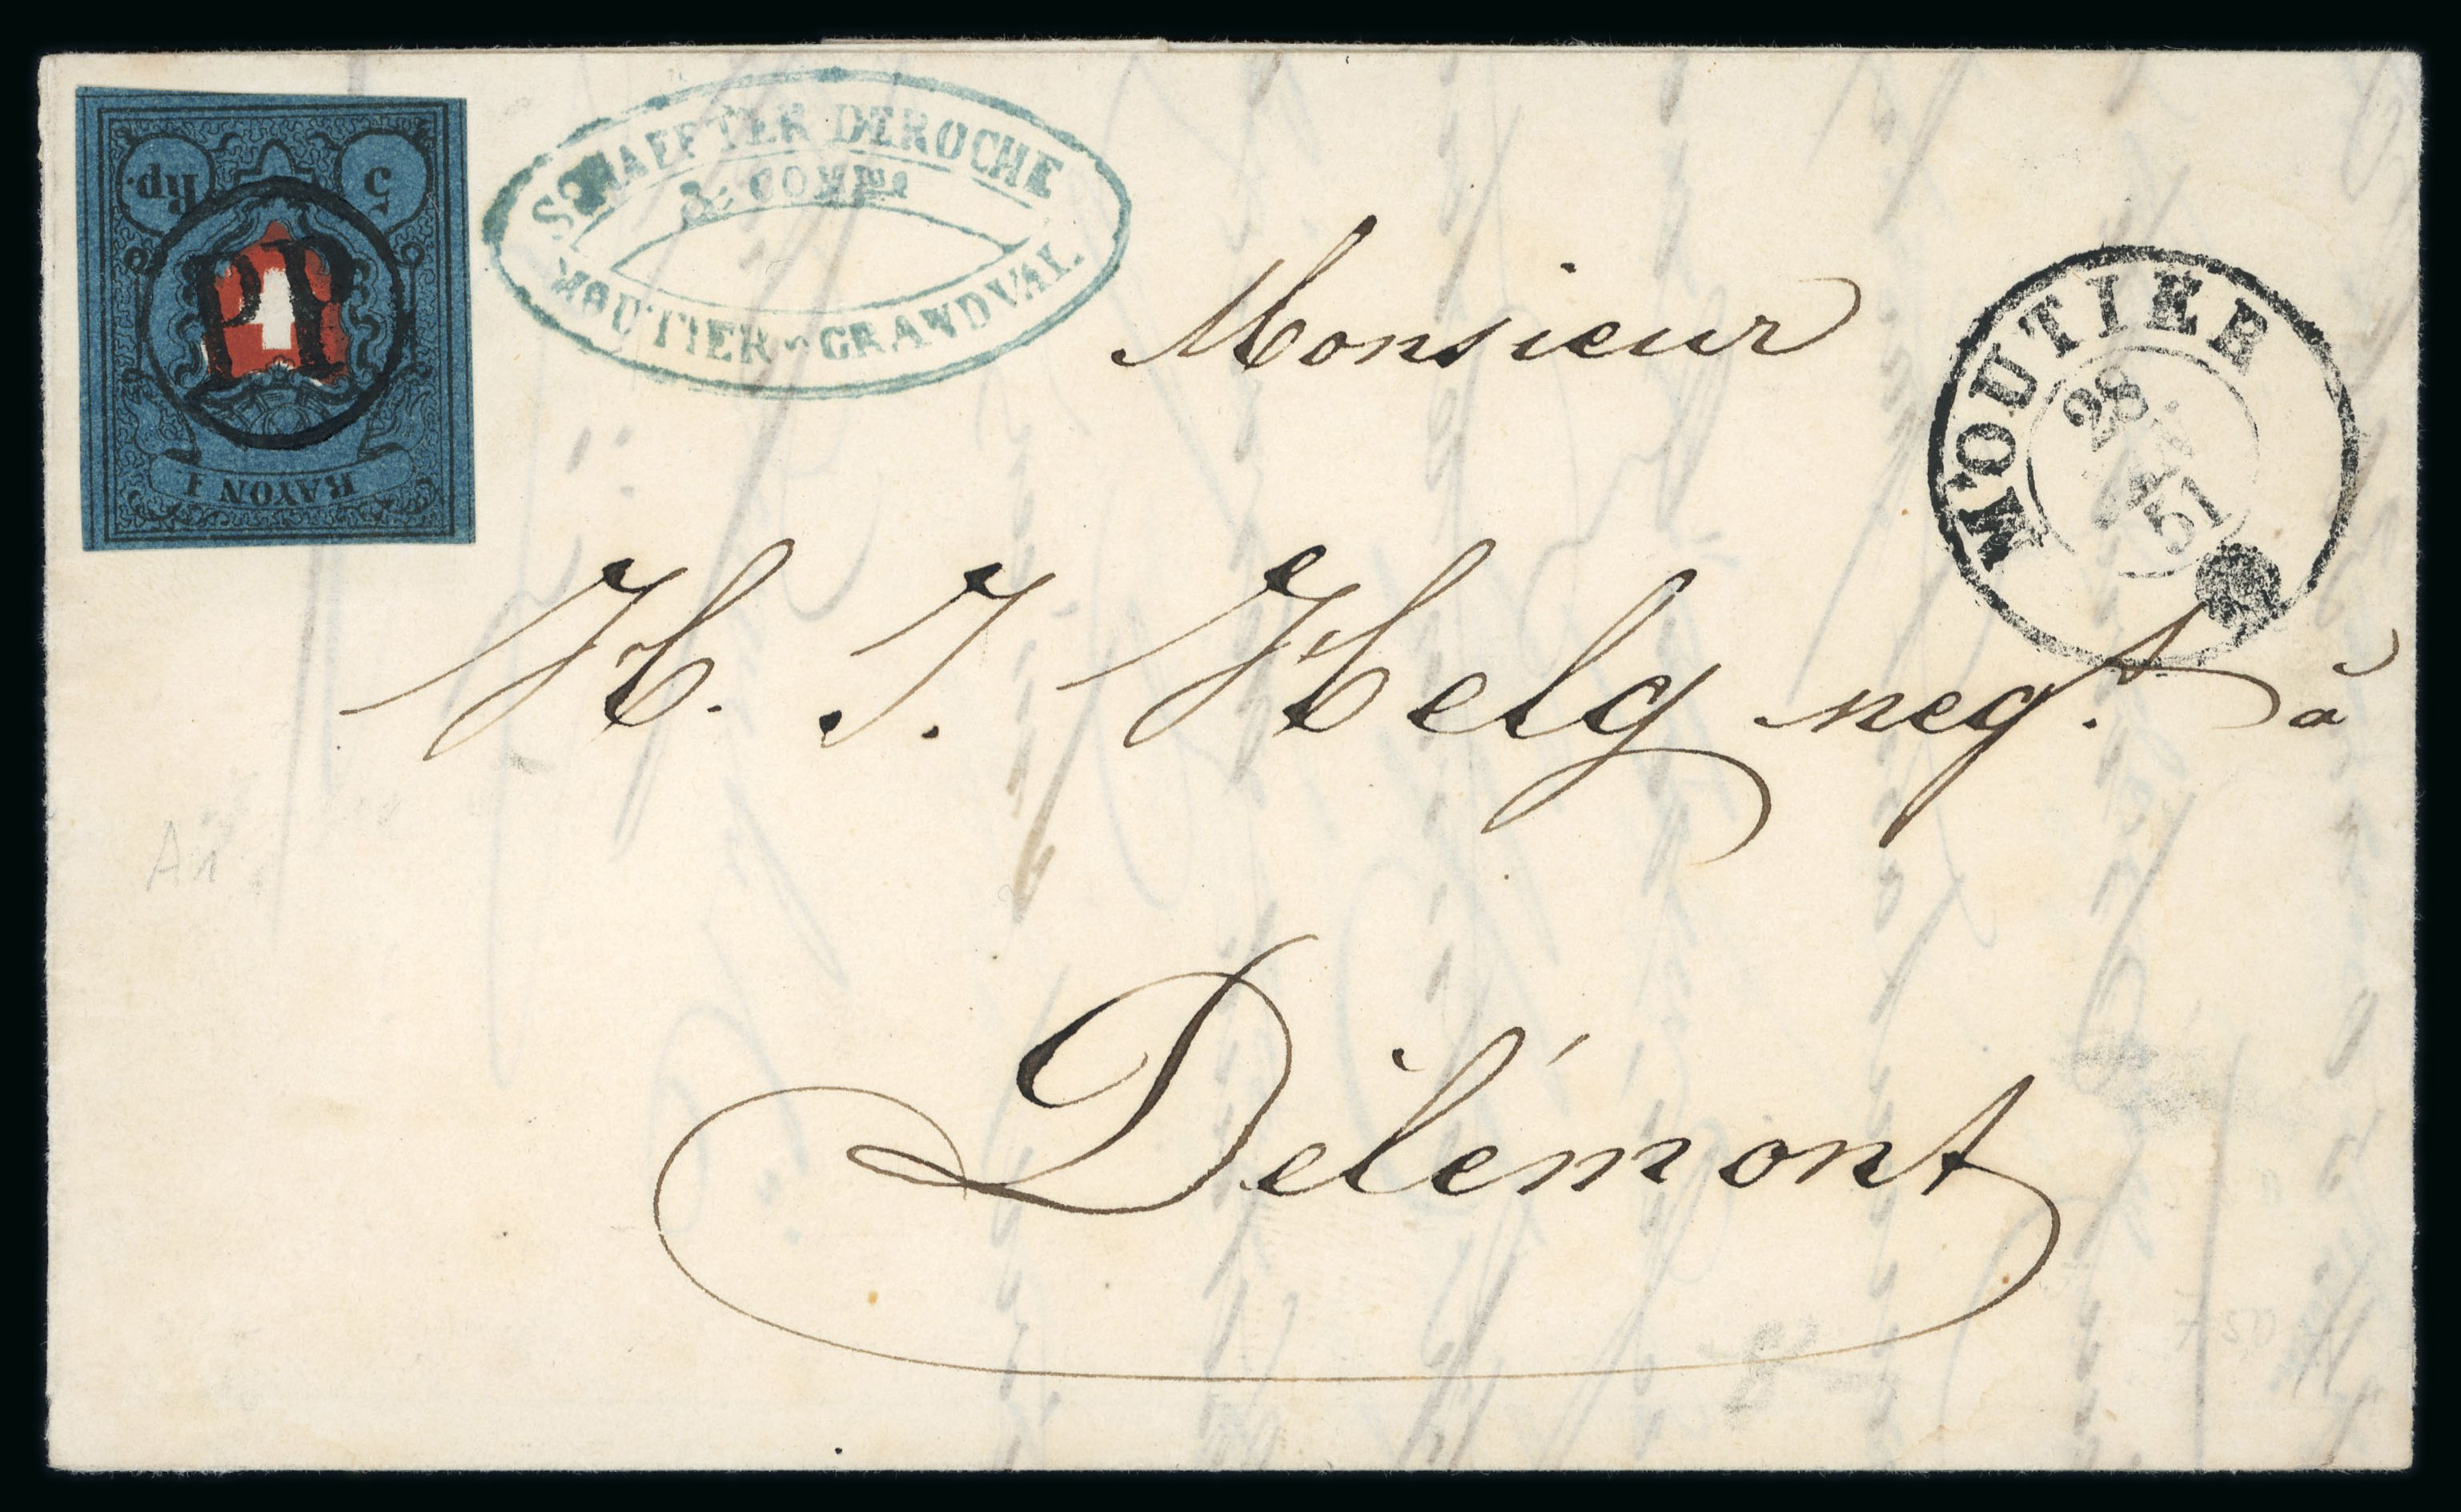 5 Rp.
PP
RAYON I
SCHAFFTER DEROCHE
& COMP
MOUTIER-GRANDVAL.
MOUTIER
28
51
Monsieur
H. J. Helg negt. à
Délémont
A1